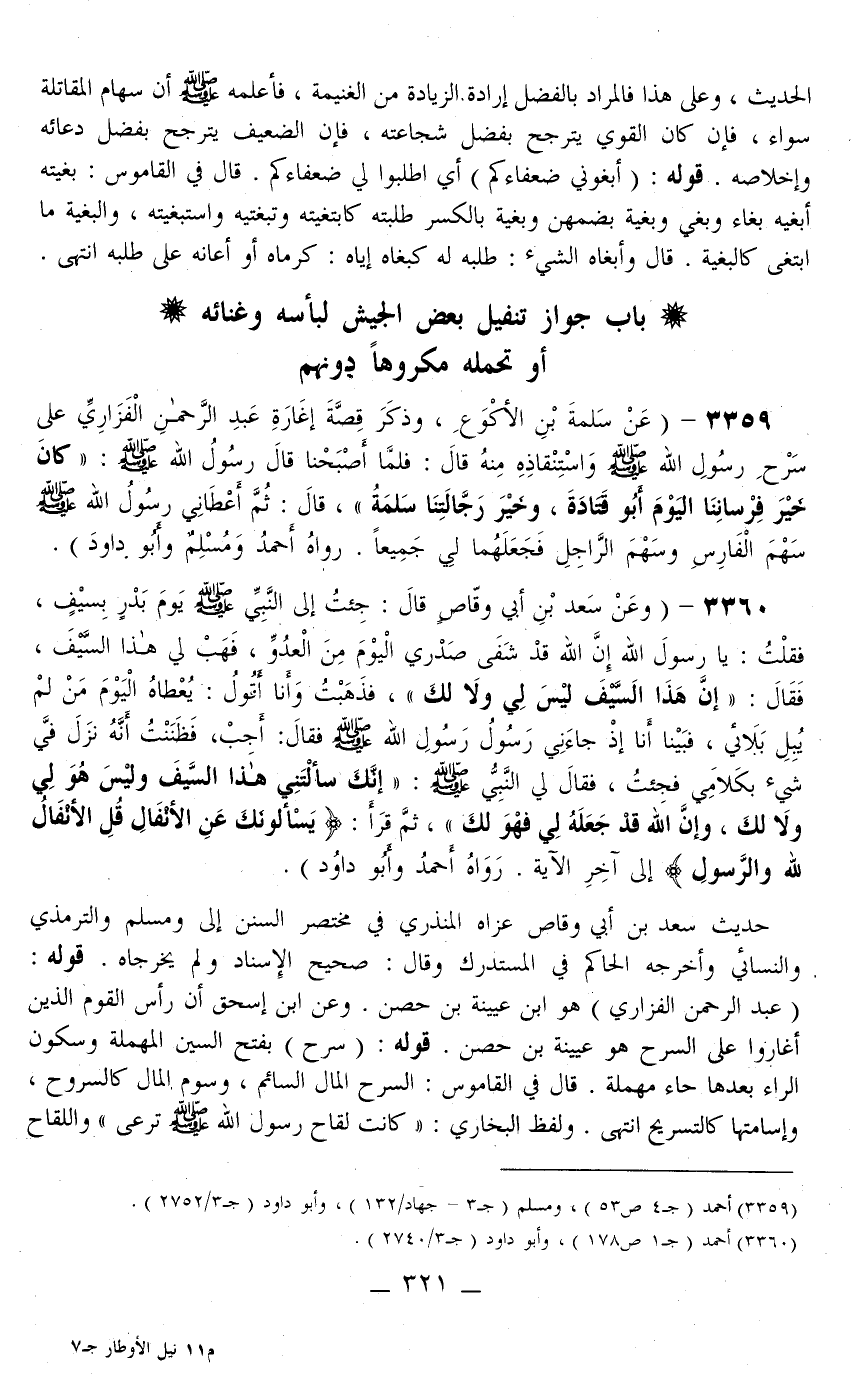 الحديث ، وعلى هذا فالمراد بالفضل إرادة الزيادة من الغنيمة ، فأعلمه ﷺ أن سهام المقاتلة
سواء ، فإن كان القوي يترجح بفضل شجاعته ، فإن الضعيف يترجح بفضل دعائه
وإخلاصه . قوله : ( أبغوني ضعفاءكم ) أي اطلبوا لي ضعفاءكم . قال في القاموس : بغيته
أبغيه بغاء وبغي وبغية بضمهن وبغية بالكسر طلبته كابتغيته وتبغتيه واستبغيته ، والبغية ما
ابتغى كالبغية . قال وأبغاه الشيء : طلبه له كبغاه إياه : كرماه أو أعانه على طلبه انتهى .
باب جواز تنفيل بعض الجيش لبأسه وغنائه
أو تحمله مكروهاً دونهم
٣٣٥٩ – ( عَنْ سَلمةَ بْنِ الأكْوَعِ ، وذكَرَ قِصَّةَ إغَارَةِ عَبدِ الرَّحمـٰنِ الْفَزَارِيِّ على
سَرْحِ رسُولِ الله ﷺ وَاسْتِنْقاذِهِ مِنهُ قالَ : فلمَّا أَصْبَحْنا قالَ رسُولُ الله ﷺ : « كانَ
خَيْرَ فِرْسانِنَا اليَوْمَ أَبُو قَتَادَةَ ، وخَيْرَ رَجَّالَتِنَا سَلمَةُ » ، قالَ : ثُمَّ أعْطانِي رسُولُ الله ﷺ
سَهْمَ الْفَارِسِ وسَهْمَ الرَّاجِلِ فَجَعَلَهُما لِي جَمِيعاً . رواهُ أَحمدُ وَمُسْلِمٌ وأَبُو داودَ ) .
٣٣٦٠ – ( وعَنْ سَعد بْنِ أبي وقّاصٍ قالَ : جِئتُ إلى النَّبِيِّ ﷺ يَومَ بَدْرٍ بِسيْفٍ ،
فقلْتُ : يا رسولَ الله إنَّ الله قدْ شَفَى صَدْرِي الْيَوْمَ مِنَ الْعدُوِّ ، فَهَبْ لي هـٰذا السيْفَ ،
فَقَالَ : « إنَّ هَذَا السَيَّفَ ليْسَ لِي ولَا لكَ » ، فذَهَبْتُ وَأنا أقُولُ : يُعْطاهُ الْيَوْمَ مَنْ لمْ
يُبلِ بَلَائي ، فَبَيْنا أنا إذْ جاءَنِي رَسُولُ رَسُولِ الله ﷺ فقالَ: أَجِبْ، فَظَنَنْتُ أَنَّهُ نزَلَ فيَّ
شيء بكَلامَي فجِئتُ ، فقالَ لي النَّبِيُّ ﷺ : « إنَّكَ سألْتَنِي هـٰذا السيَّفَ وليْسَ هُوَ لِي
ولَا لكَ ، وإنَّ الله قدْ جَعَلَهُ لِي فهْوَ لكَ » ، ثمَّ قرَأَ : ﴿ يَسْألونَكَ عَنِ الأنْفَالِ قُلِ الأنْفَالُ
لله والرَّسولِ ﴾ إلى آخِرِ الآية . رَوَاهُ أَحمدُ وأَبُو داوُد ) .
حديث سعد بن أبي وقاص عزاه المنذري في مختصر السنن إلى ومسلم والترمذي
والنسائي وأخرجه الحاكم في المستدرك وقال : صحيح الإسناد ولم يخرجاه . قوله :
( عبد الرحمن الفزاري ) هو ابن عيينة بن حصن . وعن ابن إسحق أن رأس القوم الذين
أغاروا على السرح هو عيينة بن حصن . قوله : ( سرح ) بفتح السين المهملة وسكون
الراء بعدها حاء مهملة . قال في القاموس : السرح المال السائم ، وسوم المال كالسروح ،
وإسامتها كالتسريح انتهى . ولفظ البخاري : « كانت لقاح رسول الله ﷺ ترعى » واللقاح
(٣٣٥٩) أحمد ( جـ٤ ص٥٣ ) ، ومسلم ( جـ٣ – جهاد/١٣٢ ) ، وأبو داود ( جـ٢٧٥٢/٣ ) .
(٣٣٦٠) أحمد ( جـ١ ص١٧٨ ) ، وأبو داود ( جـ٢٧٤٠/٣ ) .
– ٣٢١ –
م١١ نيل الأوطار جـ٧